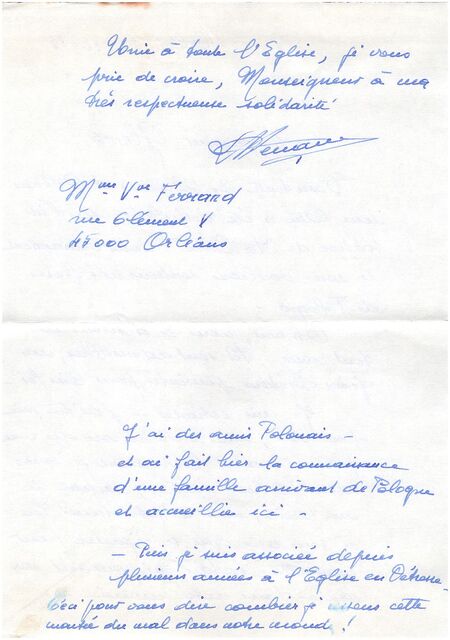 Unie à toute l'Eglise, je vous
prie de croire, Monseigneur à ma
très respectueuse solidarité
Mme Vve Ferrand
rue Clément V
45000 Orléans
J'ai des amis Polonais -
et ai fait hier la connaissance
d'une famille arrivant de Pologne
et accueillie ici -
- Puis je suis associée depuis
plusieurs années à l'Eglise en Détresse
Ceci pour vous dire combien je ressens cette
montée du mal dans notre monde !